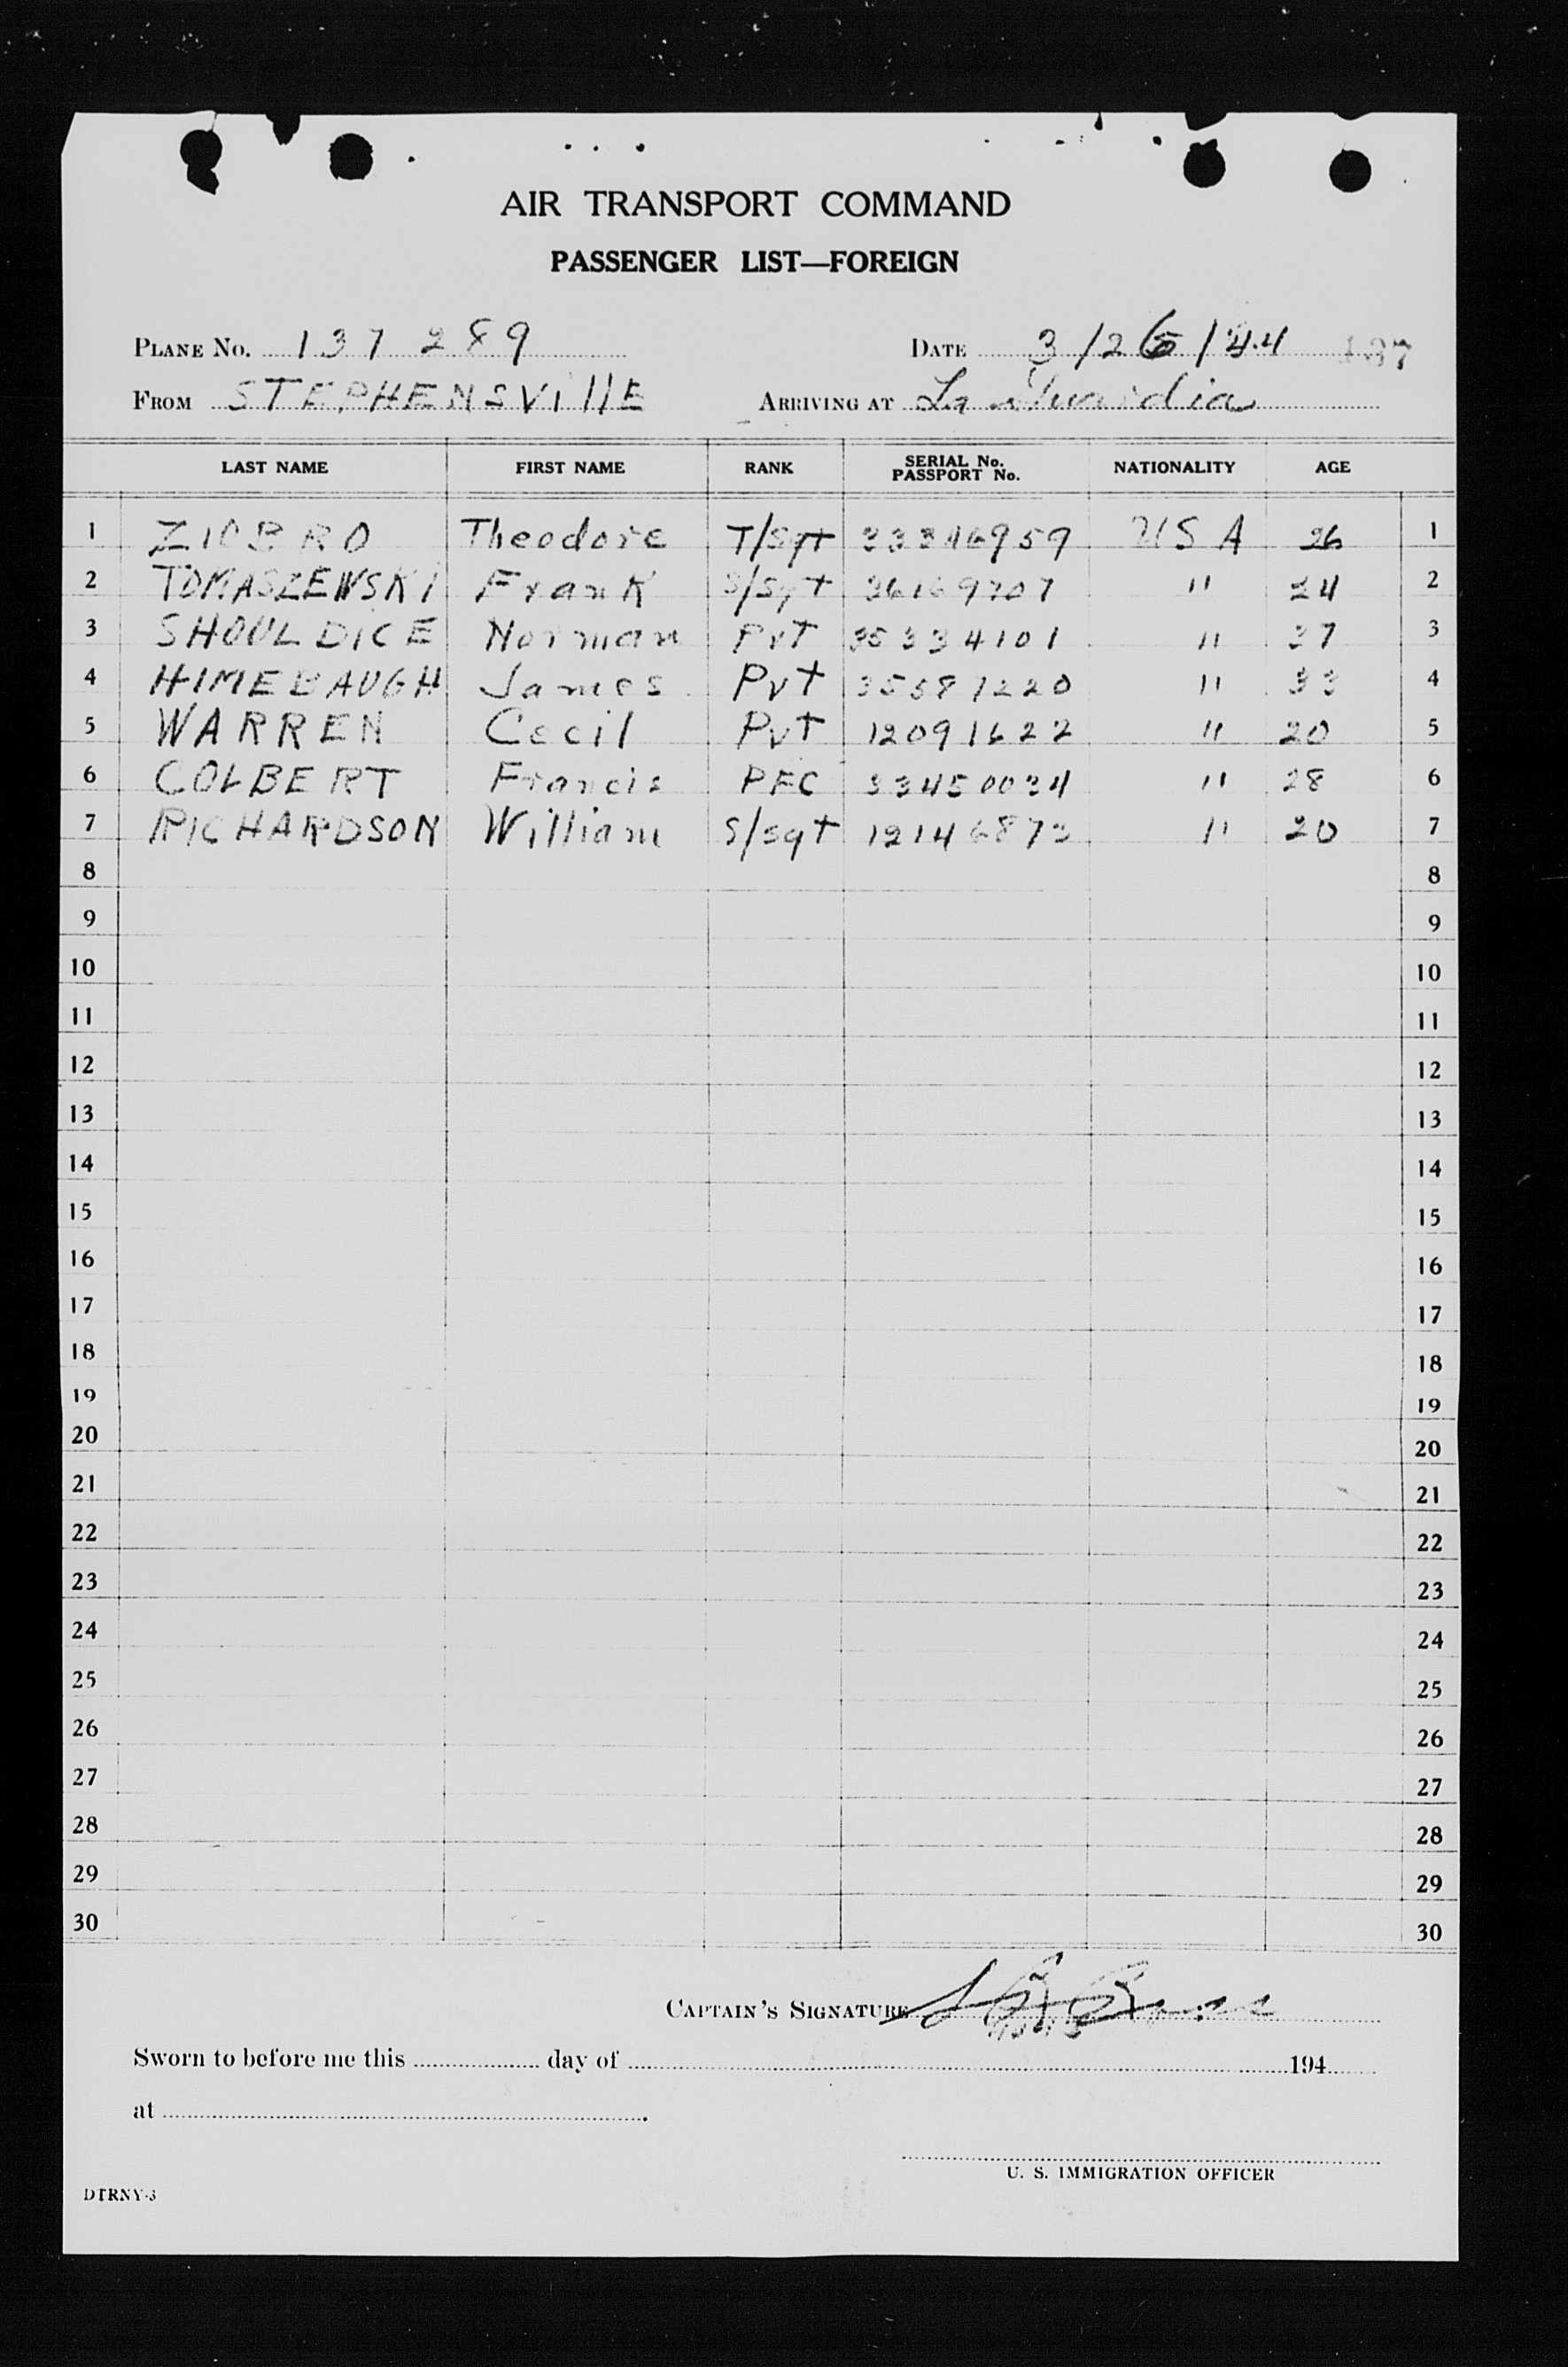 AIR TRANSPORT COMMAND
PASSENGER LIST—FOREIGN
PLANE No. 137 289 DATE 3/26/44 137
FROM STEPHENSVIllE ARRIVING AT La Guardia
LAST NAME FIRST NAME RANK SERIAL No. PASSPORT No. NATIONALITY AGE
1 ZIOBRO Theodore T/Sgt 33346959 USA 26 1
2 TOMASZEWSKI Frank S/Sgt 36169707 " 24 2
3 SHOULDICE Norman PvT 35334101 " 37 3
4 HIMEBAUGH James Pvt 35587220 " 33 4
5 WARREN Cecil PvT 12091622 " 20 5
6 COLBERT Francis PFC 33450034 " 28 6
7 RICHARDSON William S/sgt 12146873 " 20 7
8 8
9 9
10 10
11 11
12 12
13 13
14 14
15 15
16 16
17 17
18 18
19 19
20 20
21 21
22 22
23 23
24 24
25 25
26 26
27 27
28 28
29 29
30 30
CAPTAIN'S SIGNATURE
Sworn to before me this day of 194
at
U. S. IMMIGRATION OFFICER
DTRNY-3